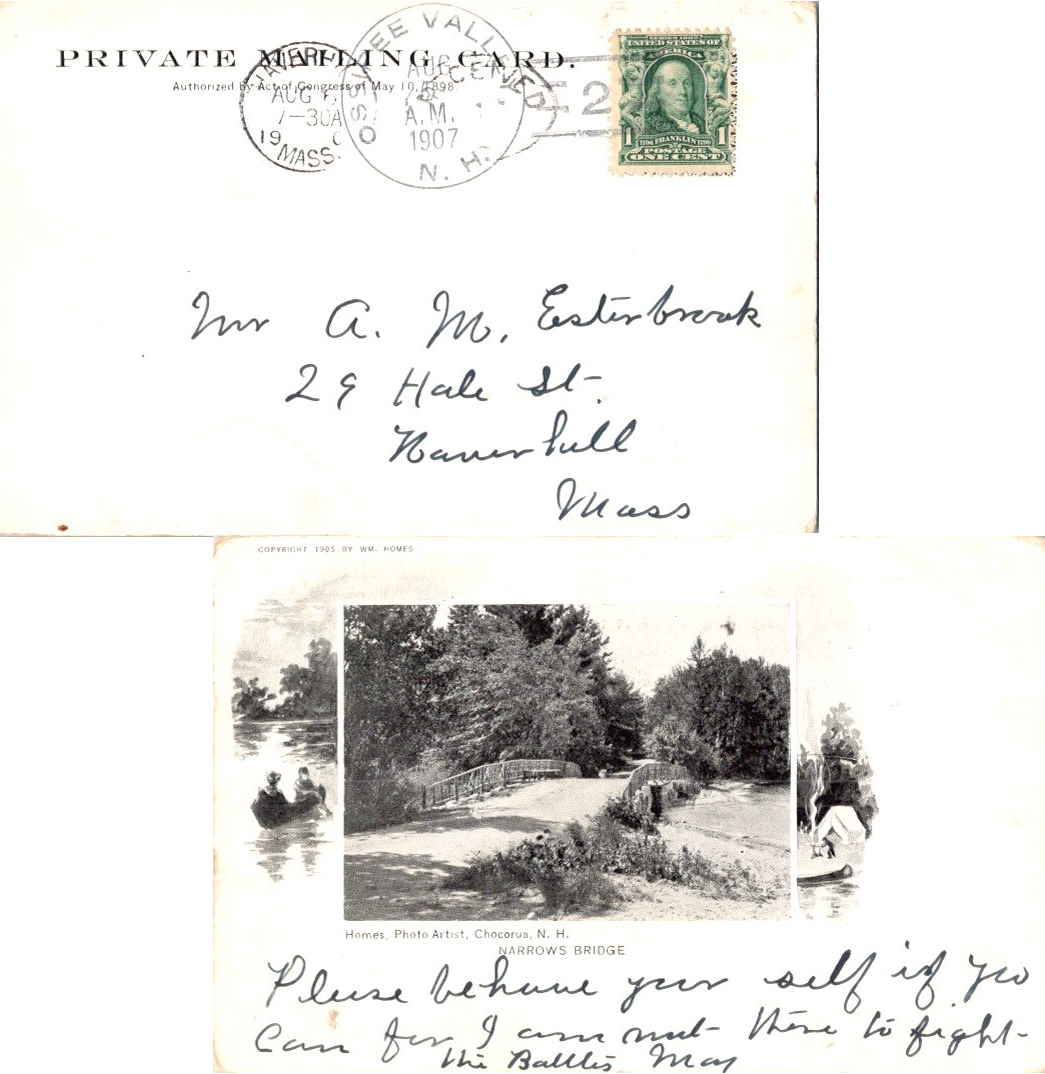 PRIVATE MAILING CARD.
Authorized by Act of Congress of May 10, 1898
AUG
7-30A
19
MASS.
OSSIPEE VALLEY
AUG
A.M.
1907
N. H.
2
SERIES 1902
UNITED STATES OF
AMERICA
1 FRANKLIN 1
POSTAGE
ONE CENT
Mr A. M. Esterbrook
29 Hale St.
Haverhill
Mass
COPYRIGHT 1905 BY WM. HOMES
Homes, Photo Artist, Chocorua, N. H.
NARROWS BRIDGE
Please behave your self if you
Can for I am not there to fight
the Battles May